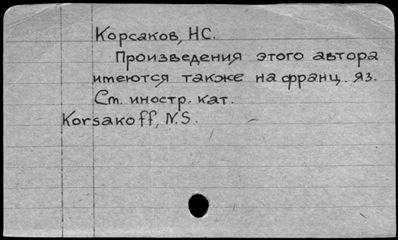 Корсаков, НС.
Произведения этого автора
имеются также на франц. яз.
См. иностр. кат.
Korsakoff, N.S.